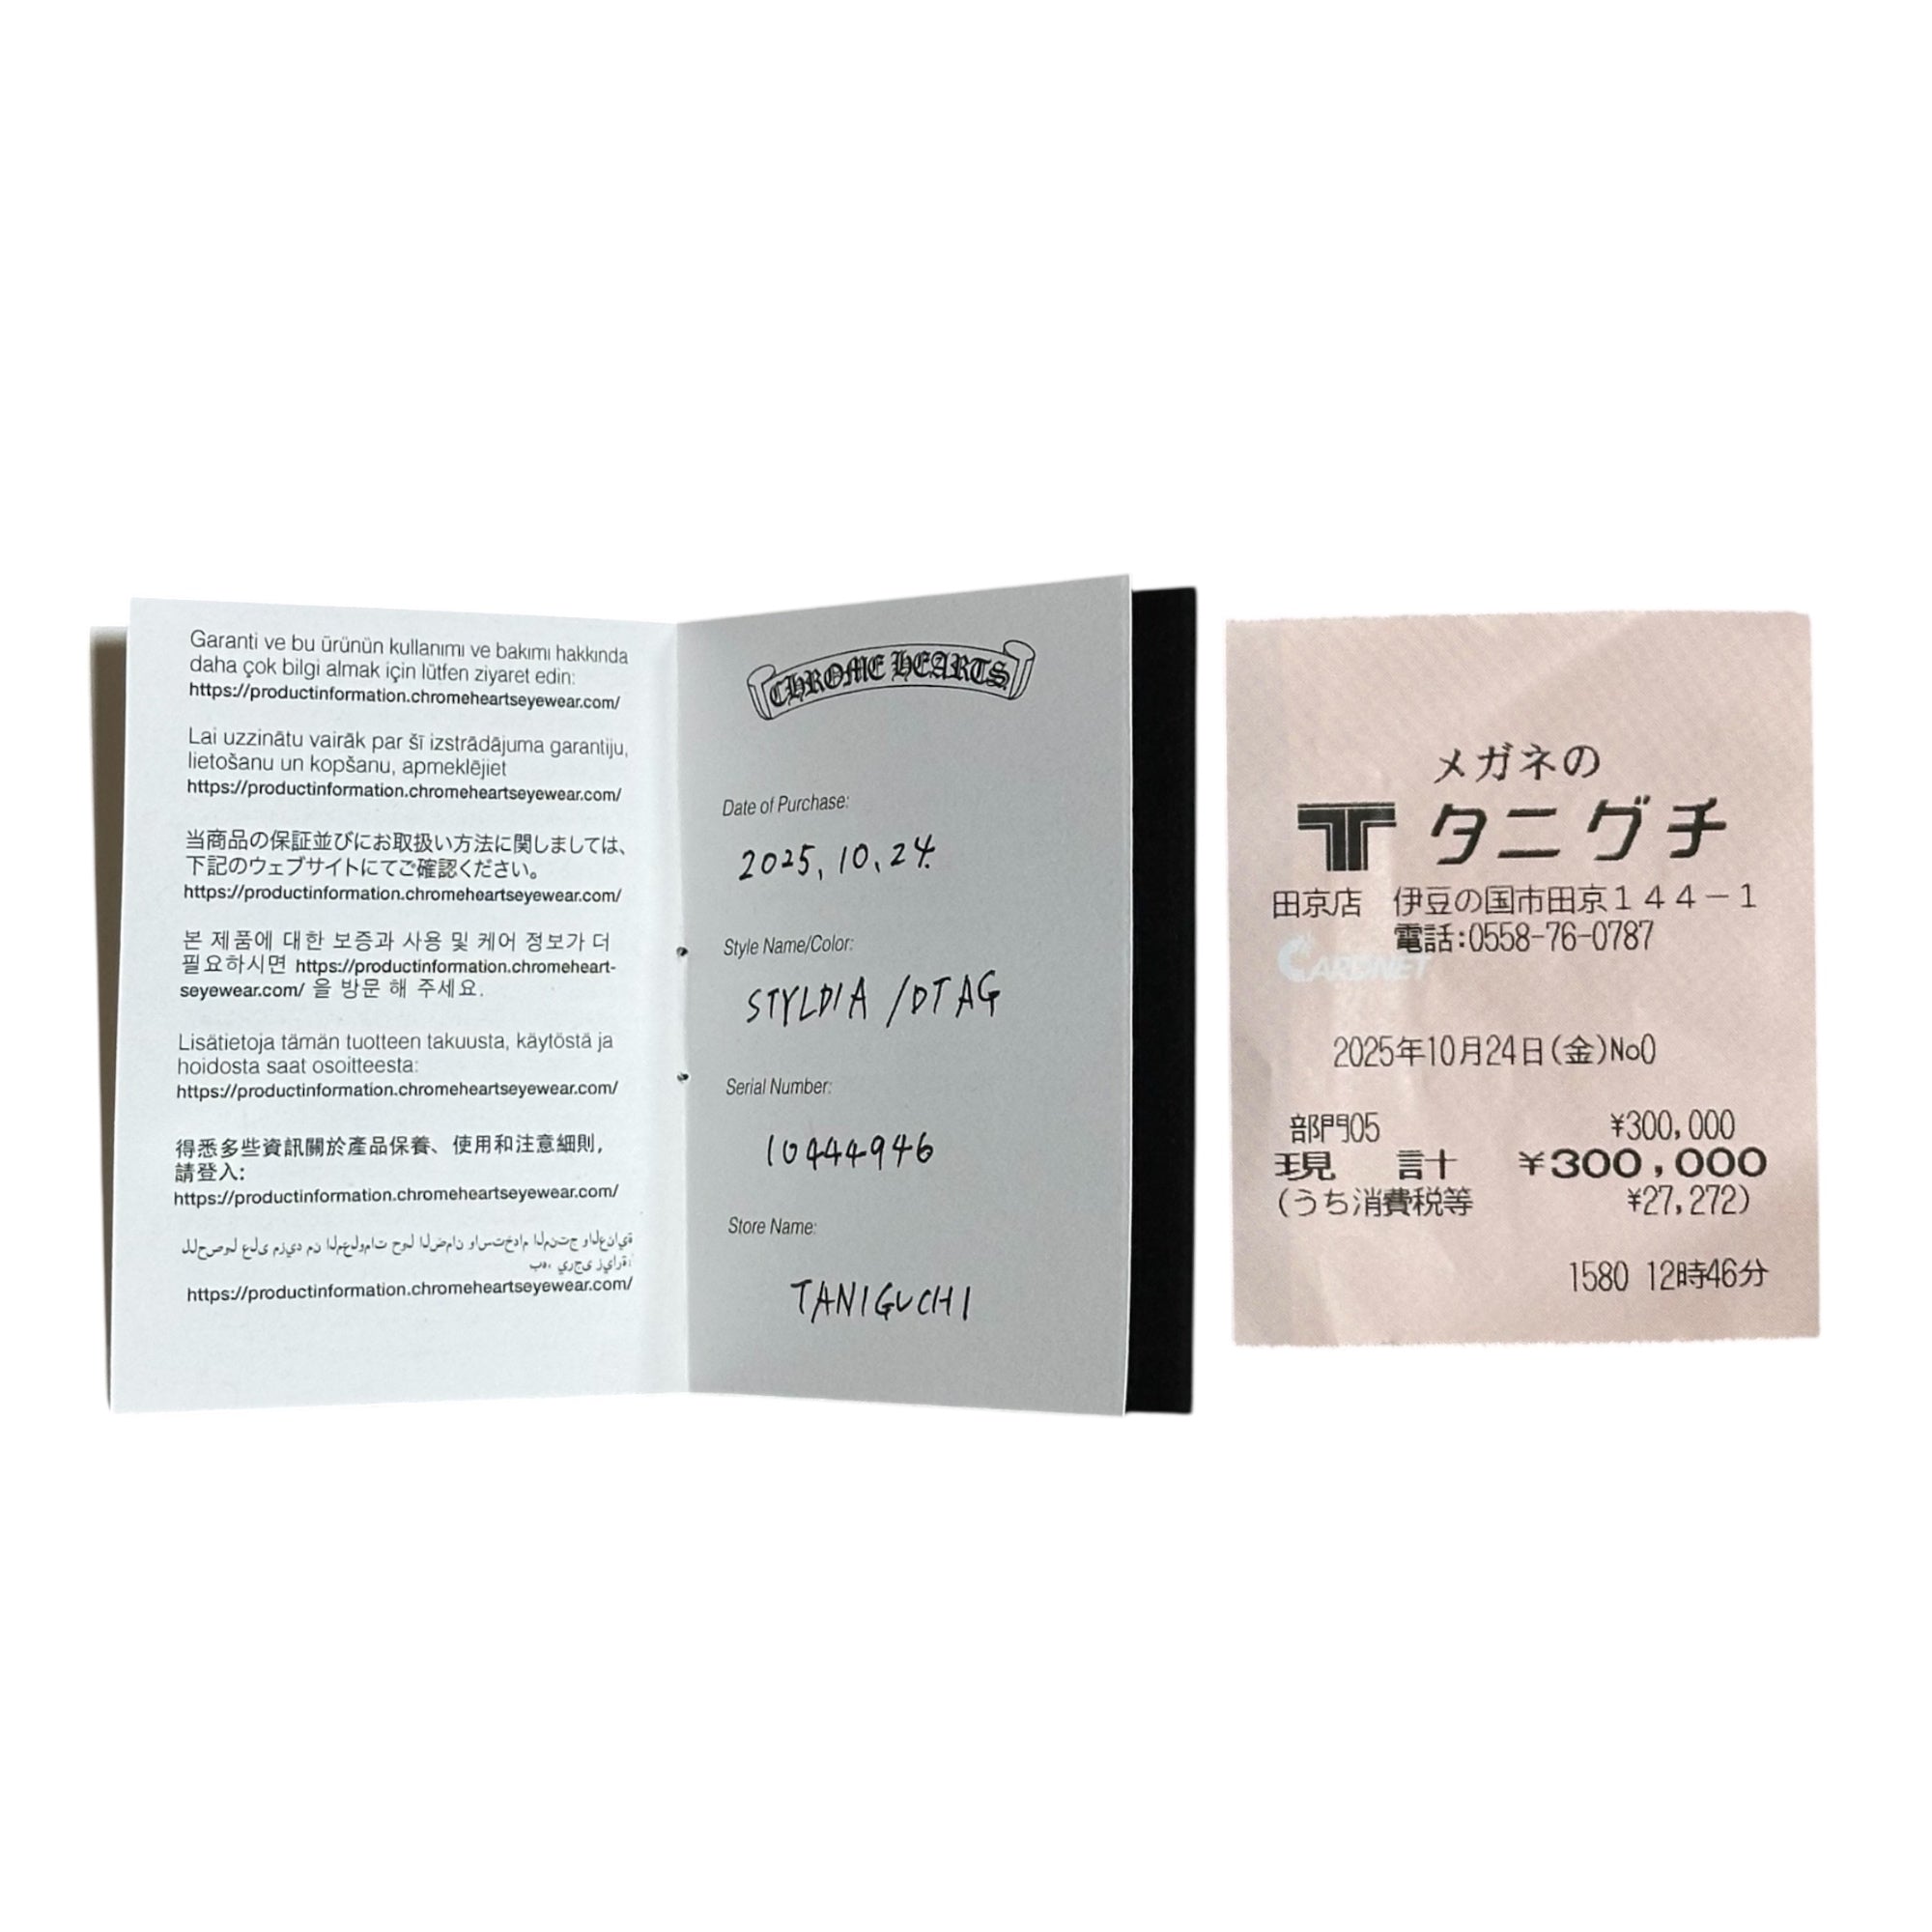 Garanti ve bu ürünün kullanımı ve bakımı hakkında
daha çok bilgi almak için lütfen ziyaret edin:
https://productinformation.chromeheartseyewear.com/
Lai uzzinātu vairāk par šī izstrādājuma garantiju,
lietošanu un kopšanu, apmeklējiet
https://productinformation.chromeheartseyewear.com/
当商品の保証並びにお取扱い方法に関しましては、
下記のウェブサイトにてご確認ください。
https://productinformation.chromeheartseyewear.com/
본 제품에 대한 보증과 사용 및 케어 정보가 더
필요하시면 https://productinformation.chromeheart-
seyewear.com/ 을 방문 해 주세요.
Lisätietoja tämän tuotteen takuusta, käytöstä ja
hoidosta saat osoitteesta:
https://productinformation.chromeheartseyewear.com/
得悉多些資訊關於產品保養、使用和注意細則,
請登入:
https://productinformation.chromeheartseyewear.com/
https://productinformation.chromeheartseyewear.com/
CHROME HEARTS
Date of Purchase:
2025, 10, 24.
Style Name/Color:
STYLDIA /DTAG
Serial Number:
10444946
Store Name:
TANIGUCHI
メガネの
T タニグチ
田京店 伊豆の国市田京１４４－１
電話:0558-76-0787
CARDNET
2025年10月24日(金)No0
部門05 ¥300,000
現 計 ¥300,000
(うち消費税等 ¥27,272)
1580 12時46分